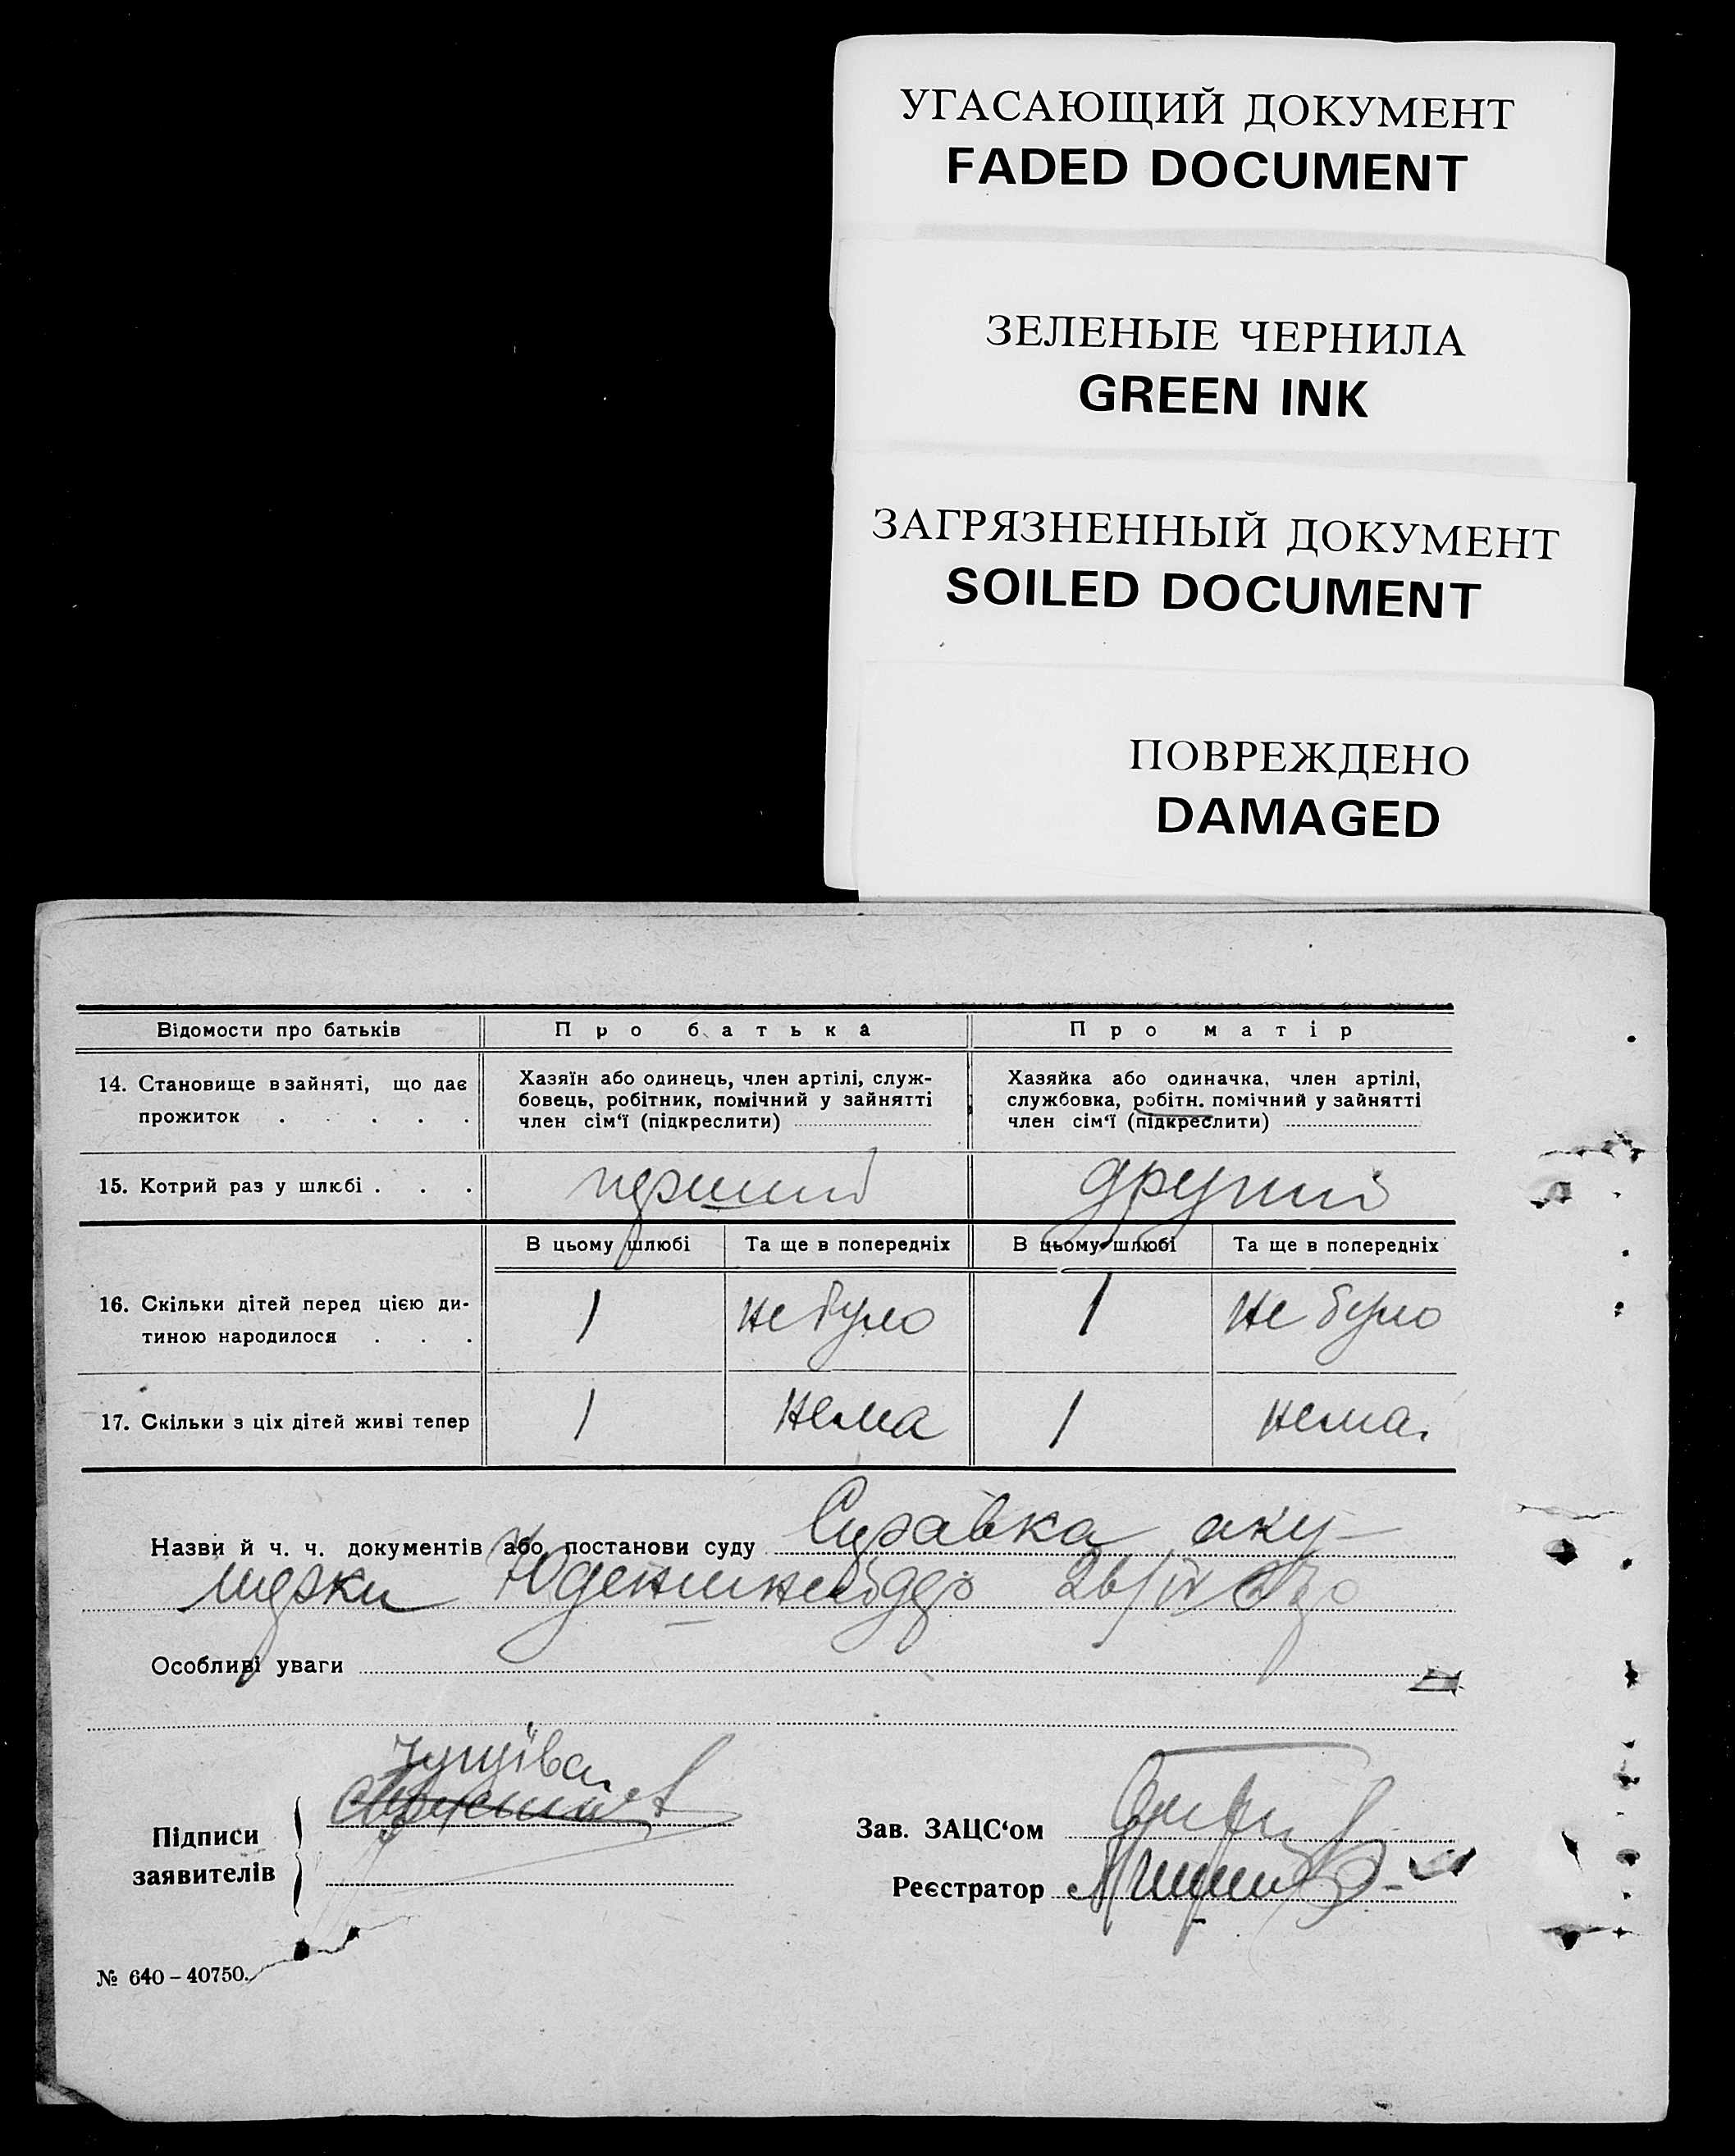 УГАСАЮЩИЙ ДОКУМЕНТ
FADED DOCUMENT
ЗЕЛЕНЫЕ ЧЕРНИЛА
GREEN INK
ЗАГРЯЗНЕННЫЙ ДОКУМЕНТ
SOILED DOCUMENT
ПОВРЕЖДЕНО
DAMAGED
Відомости про батьків Про батька Про матір
14. Становище в зайняті, що дає
прожиток . . . . .
Хазяїн або одинець, член артілі, служ-
бовець, робітник, помічний у зайнятті
член сім‘ї (підкреслити)
Хазяйка або одиначка, член артілі,
службовка, робітн. помічний у зайнятті
член сім‘ї (підкреслити)
15. Котрий раз у шлюбі . . . перший другий
В цьому шлюбі Та ще в попередніх В цьому шлюбі Та ще в попередніх
16. Скільки дітей перед цією ди-
тиною народилося . . .
1 не було 1 не було
17. Скільки з ціх дітей живі тепер 1 нема 1 нема.
Назви й ч. ч. документів або постанови суду Справка аку-
шерки 26/IV
Особливі уваги
Підписи
заявителів
Зав. ЗАЦС‘ом
Реєстратор
№ 640 – 40750.